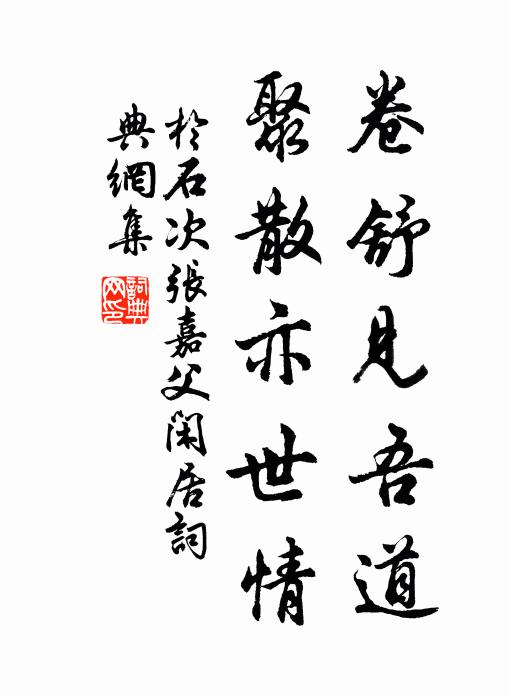 卷舒見吾道
聚散亦世情
於石次張嘉父閑居詞
典網集
詞典網印